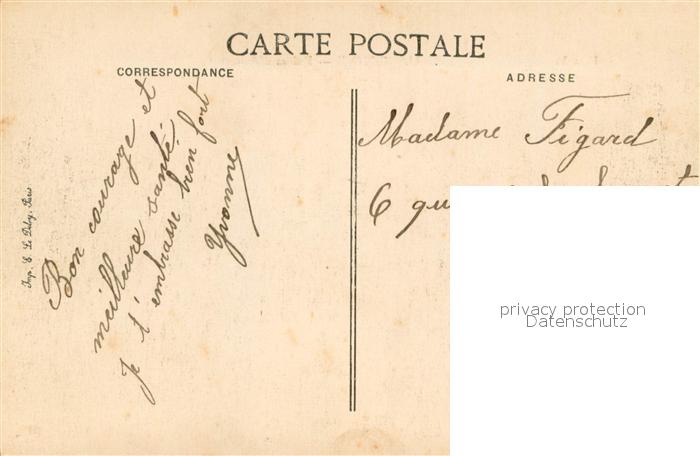 CARTE POSTALE
CORRESPONDANCE
ADRESSE
Bon courage et
meilleure santé.
Je t'embrasse bien fort
Yvonne
Imp. E. Le Deley, Paris
Madame Figard
6
privacy protection
Datenschutz